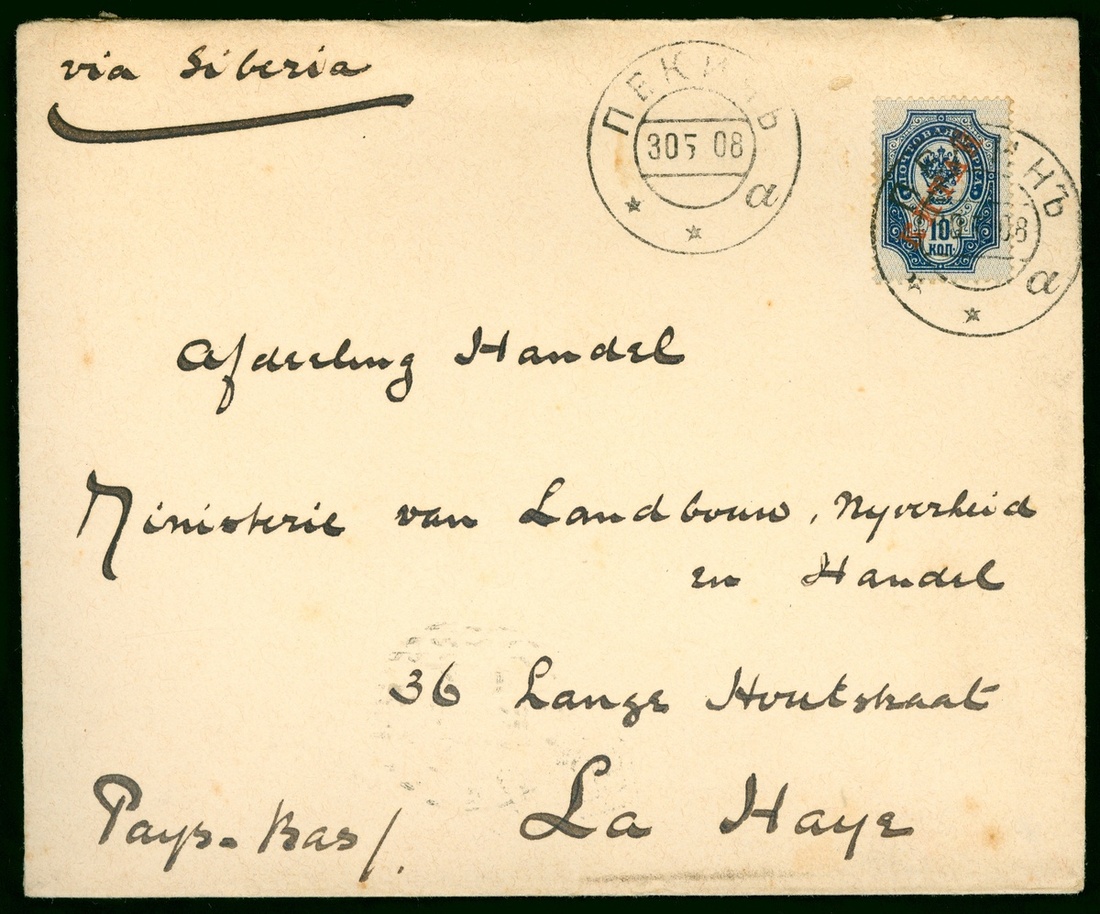 via Siberia
ПЕКИНЪ
30 5 08
а
ПОЧТОВАЯ МАРКА
КИТАЙ
10
КОП.
08
а
Afdeeling Handel
Ministerie van Landbouw, Nyverheid
en Handel
36 Lange Houtstraat
La Haye
Pays-Bas/.